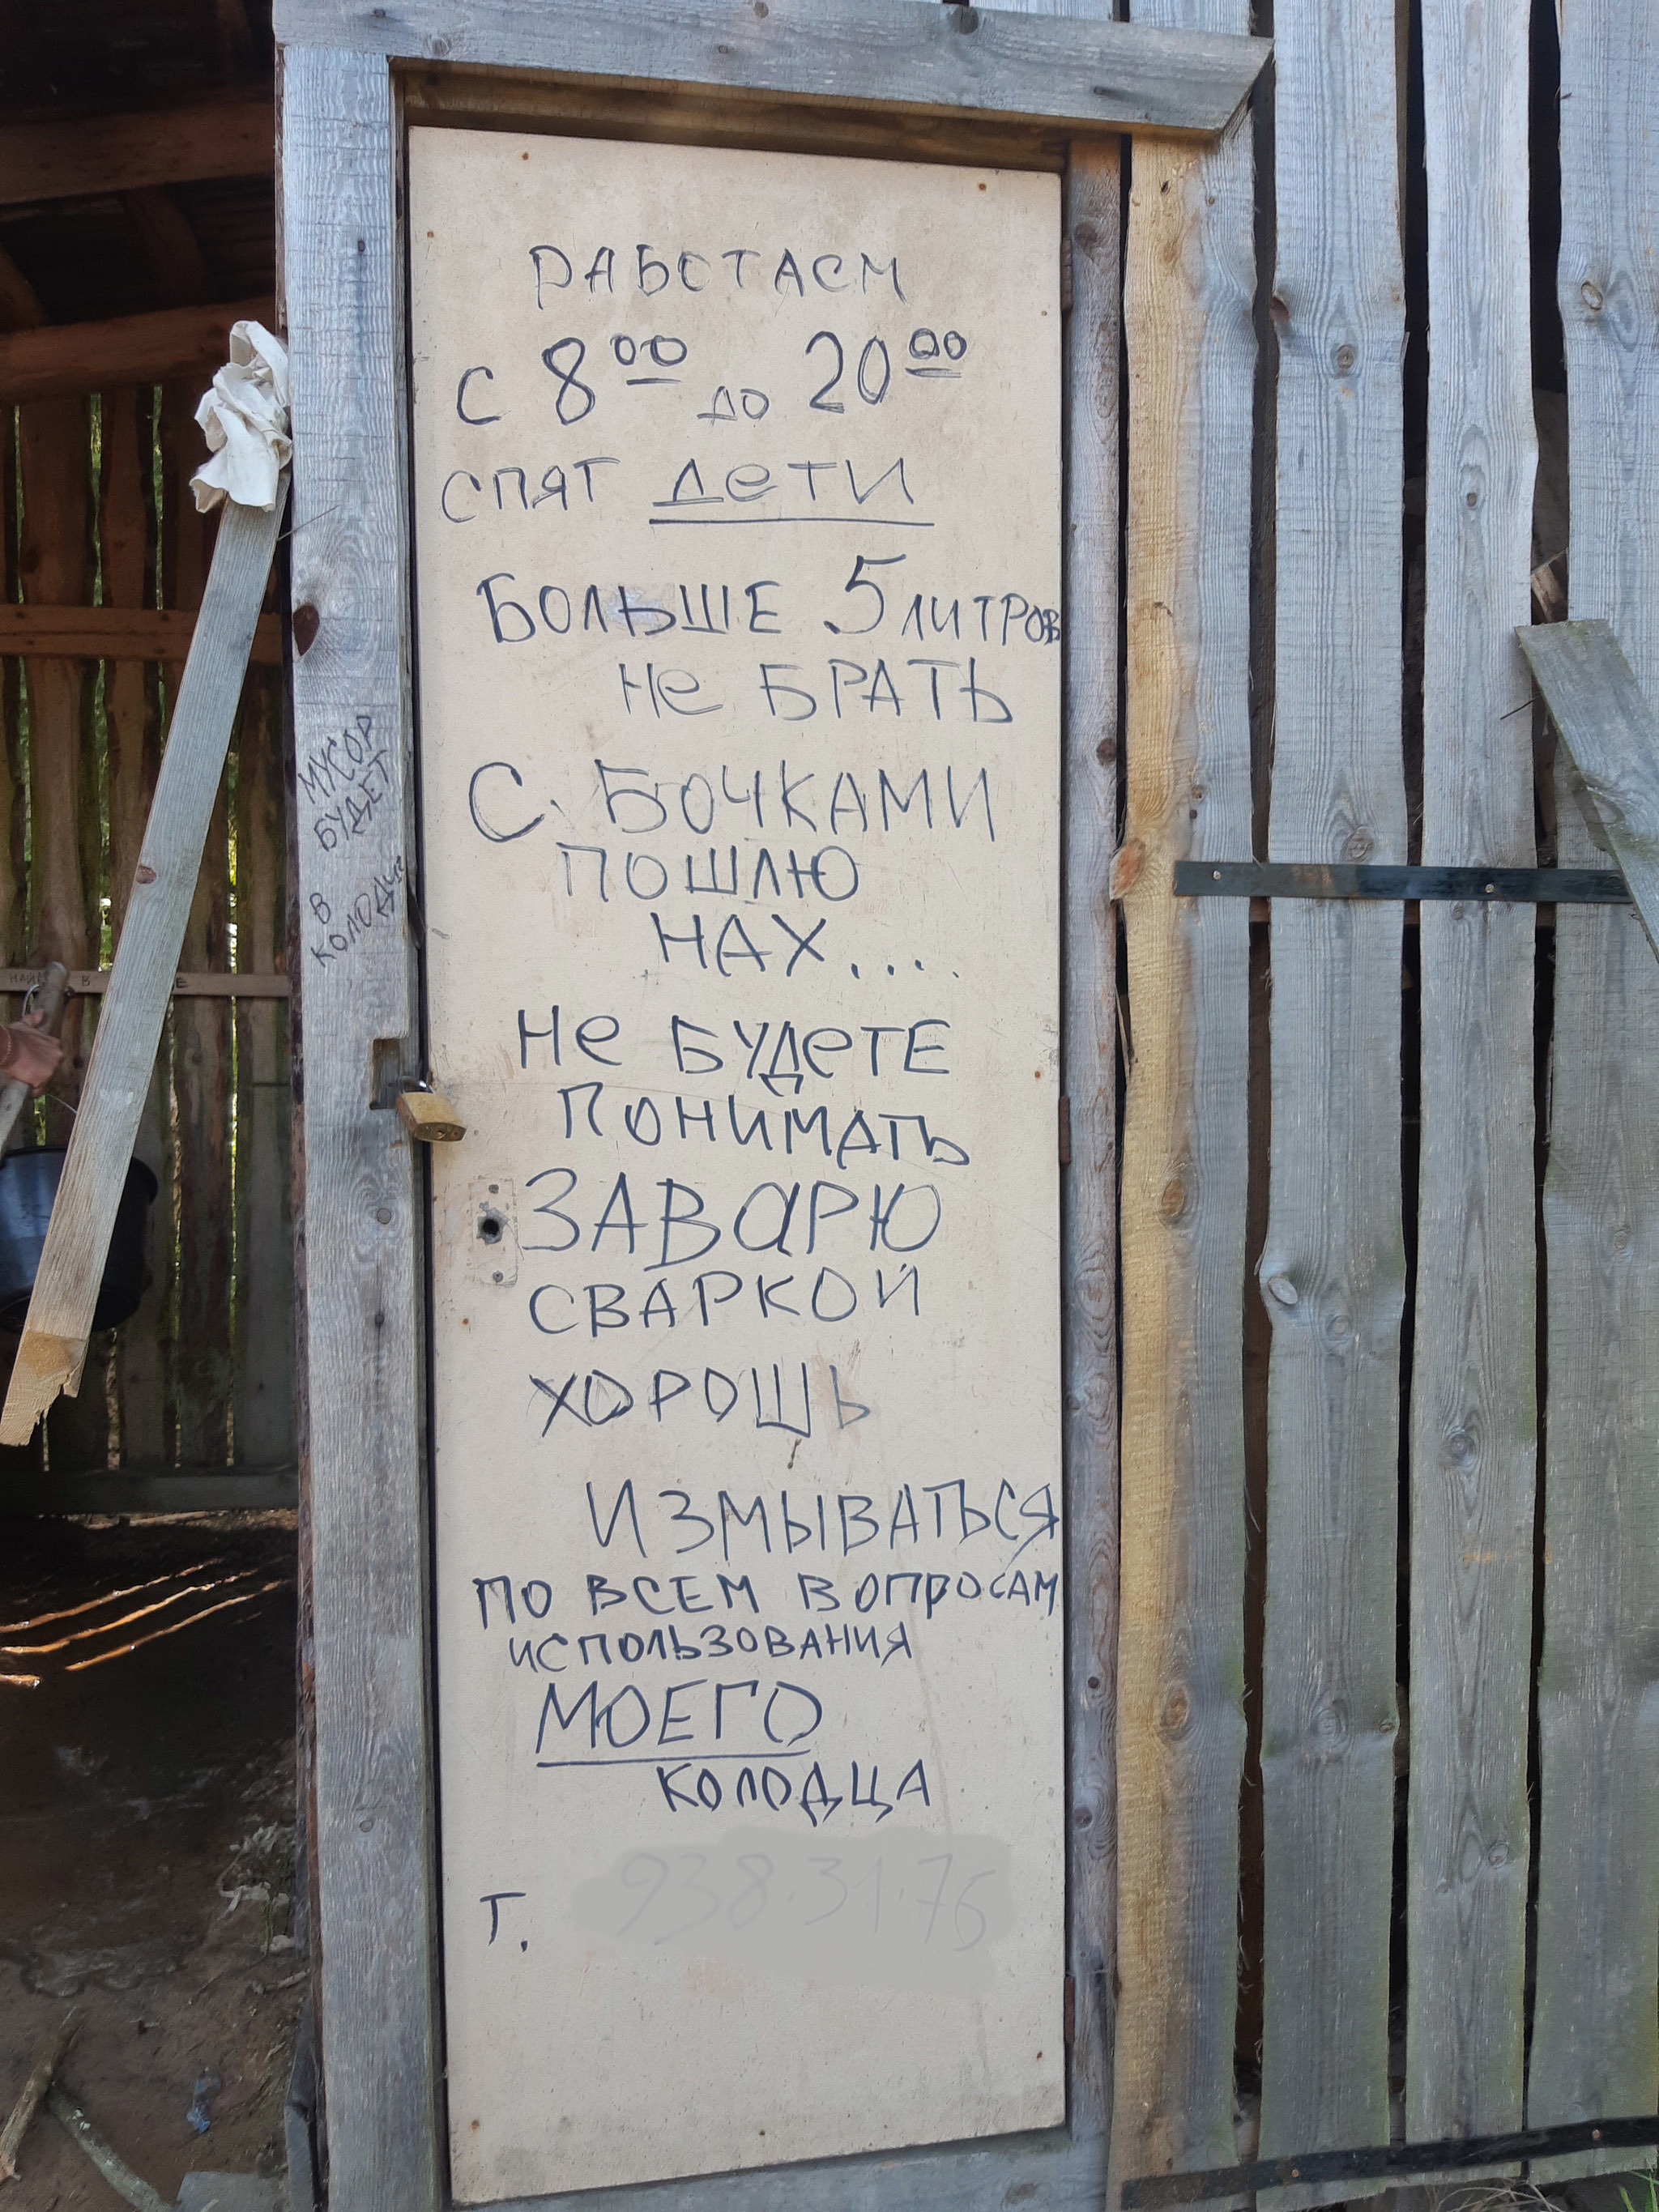 РАБОТАЕМ
С 8⁰⁰ ДО 20⁰⁰
СПЯТ ДеТИ
БОЛЬШЕ 5 ЛИТРОВ
Не БРАТЬ
С БОЧКАМИ
ПОШЛЮ
НАХ....
Не БУДеТЕ
ПОНИМАТЬ
ЗАВаРЮ
СВАРКОЙ
ХОРОШЬ
ИЗМЫВАТЬСЯ
ПО ВСЕМ ВОПРОСАМ
ИСПОЛЬЗОВАНИЯ
МОЕГО
КОЛОДЦА
Т.
МУСОР
БУДЕТ
В
КОЛОДЦе